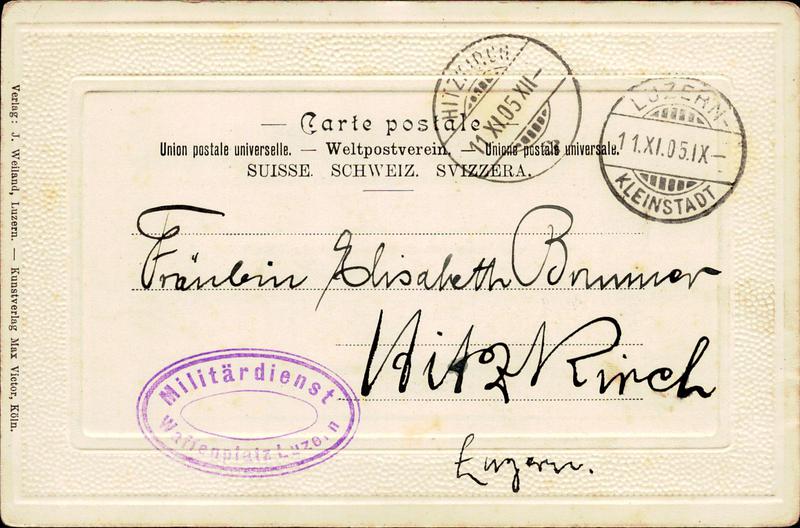 HITZKIRCH
11.XI.05.XII—
LUZERN—
11.XI.05.IX—
KLEINSTADT
— Carte postale. —
Union postale universelle. — Weltpostverein. — Unione postale universale.
SUISSE. SCHWEIZ. SVIZZERA.
Fräulein Elisabeth Brunner
Hitzkirch
Luzern.
Militärdienst
Waffenplatz Luzern
Verlag: J. Weiland, Luzern. — Kunstverlag Max Victor, Köln.